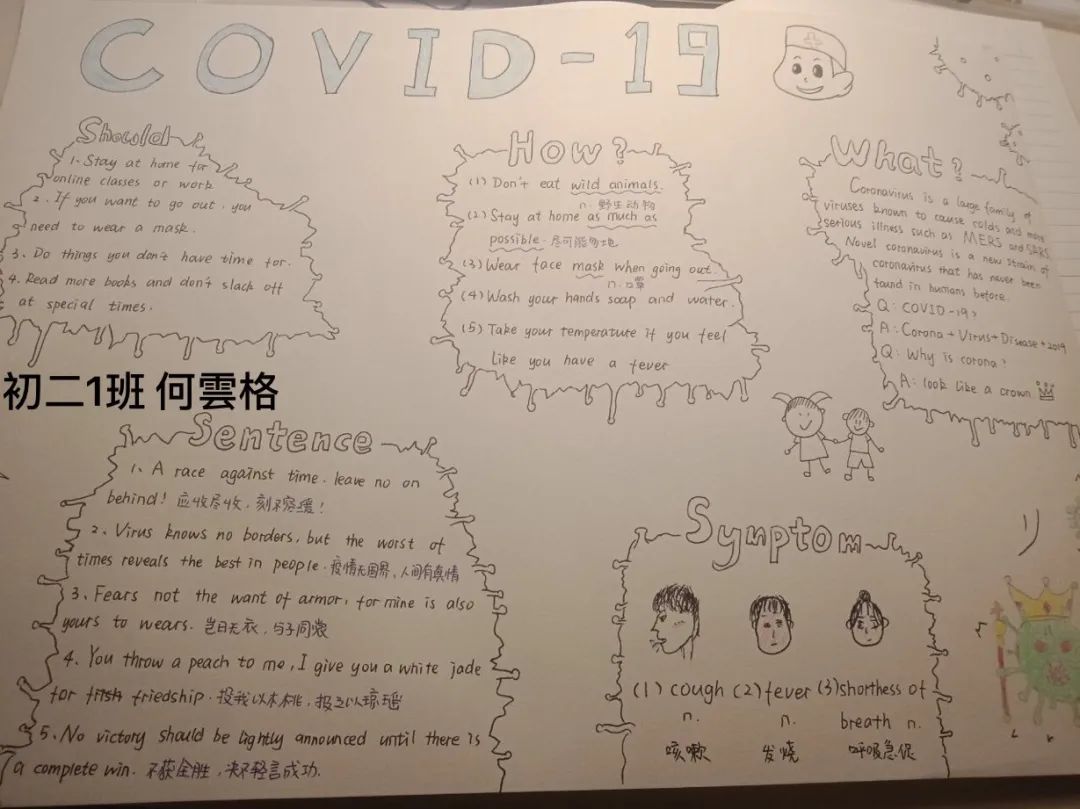 COVID-19
Should
1. Stay at home for
online classes or work
2. If you want to go out, you
need to wear a mask.
3. Do things you don't have time for.
4. Read more books and don't slack off
at special times.
How?
(1) Don't eat wild animals.
n. 野生动物
(2) Stay at home as much as
possible. 尽可能多地
(3) Wear face mask when going out.
n. 口罩
(4) Wash your hands soap and water.
(5) Take your temperature if you feel
Like you have a fever
What?
Coronavirus is a large family of
viruses known to cause colds and more
serious illness such as MERS and SARS
Novel coronavirus is a new strain of
coronavirus that has never been
found in humans before.
Q: COVID-19?
A: Corona + Virus + Disease + 2019
Q: Why is corona?
A: look like a crown
初二1班 何雲格
Sentence
1、A race against time. leave no on
behind! 应收尽收，刻不容缓！
2、Virus knows no borders, but the worst of
times reveals the best in people. 疫情无国界，人间有真情
3、Fears not the want of armor, for mine is also
yours to wears. 岂曰无衣，与子同裳
4. You throw a peach to me, I give you a white jade
for friendship. 投我以木桃，报之以琼瑶
5. No victory should be lightly announced until there is
a complete win. 不获全胜，决不轻言成功.
Symptom
(1) cough (2) fever (3) shorthess of
n. n. breath n.
咳嗽 发烧 呼吸急促